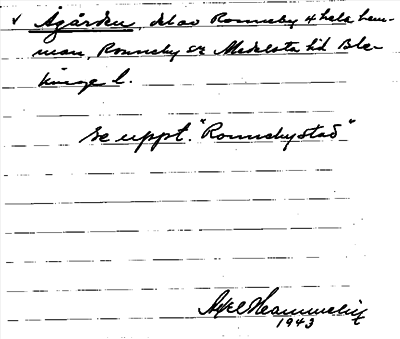 ✓ Ågården, del av Ronneby 4 hela hem-
man, Ronneby sn Medelsta hd Ble-
kinge l.
se uppt. "Ronneby stad"
Axel
1943